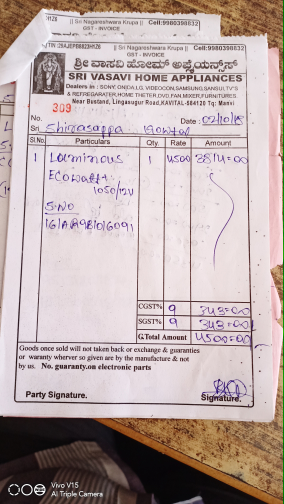 HZ6 || Sri Nagareshwara Krupa || Cell:9980398832
GST - INVOICE
GSTIN :29AJEPB8823H1Z6 || Sri Nagareshwara Krupa || Cell:9980398832
GST - INVOICE
ಶ್ರೀ ವಾಸವಿ ಹೋಮ್ ಅಪ್ಲೈಯನ್ಸಸ್
SRI VASAVI HOME APPLIANCES
Dealers in : SONY, ONIDA, LG, VIDEOCON, SAMSUNG, SANSUI, TV'S
& REFREGARATER, HOME THETER, DVD, FAN, MIXER, FURNITURES
Near Bustand, Lingasugur Road, KAVITAL-584120 Tq: Manvi
309
No. Date : 02/10/18
Sri. Shivasappa
Sl.No. Particulars Qty. Rate Amount
1 Luminous 1 4500 3814=00
Ecowatt
1050/12V
S.NO
CGST% 9 343=00
SGST% 9 343=00
G.Total Amount 4500=00
Goods once sold will not taken back or exchange & guaranties
or waranty wherver so given are by the manufacture & not
by us. No. guaranty.on electronic parts
Party Signature. Signature.
Vivo V15
AI Triple Camera